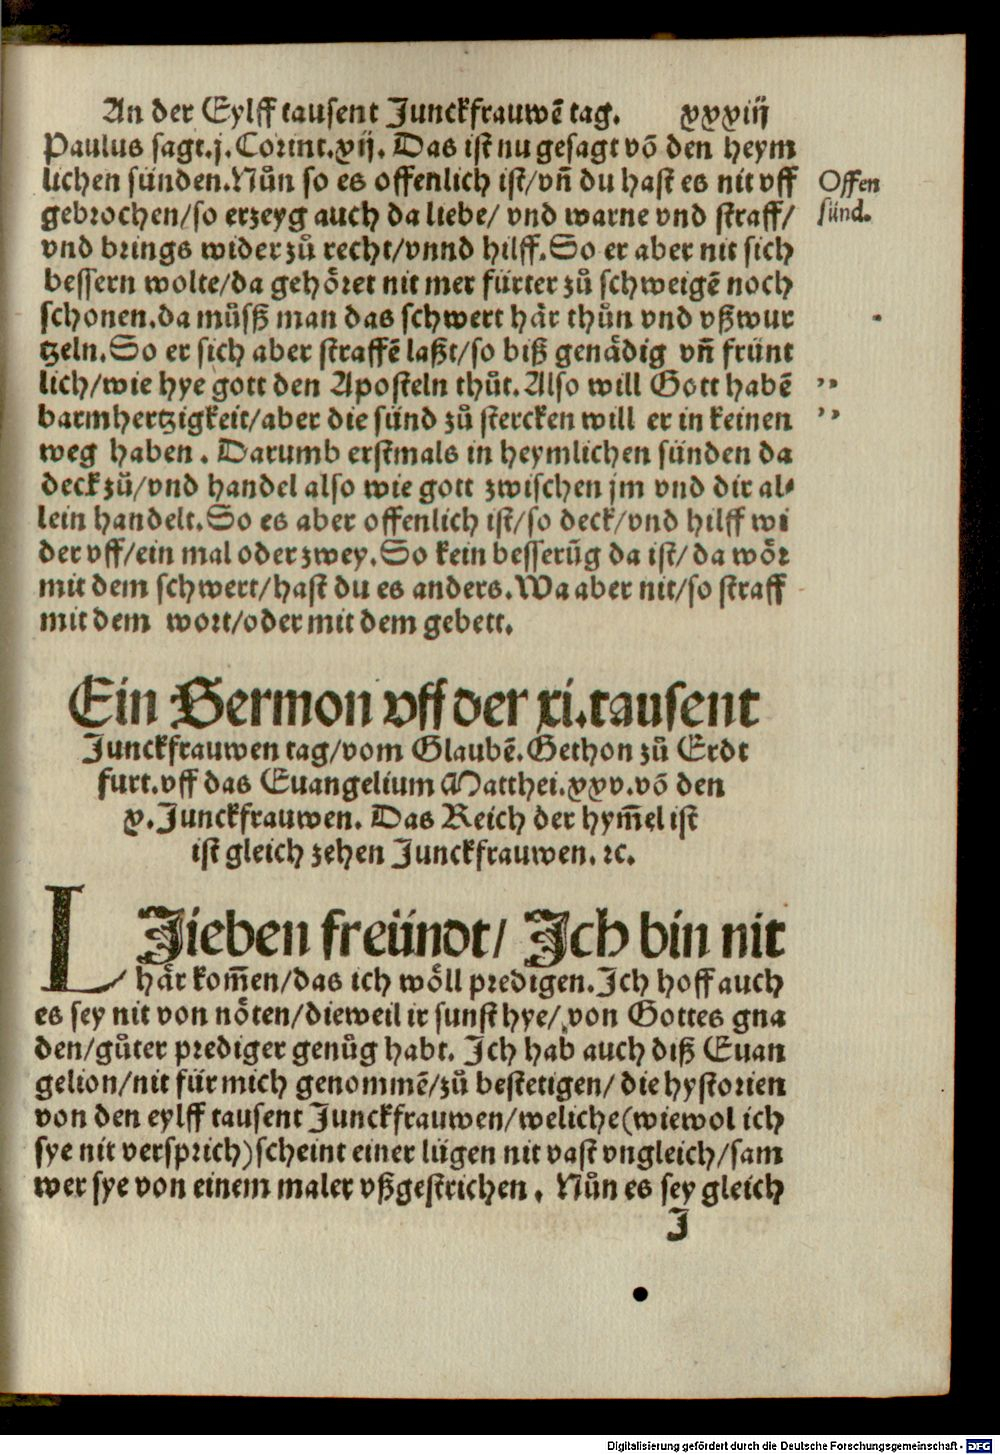 An der Eylff tausent Junckfrauwē tag. xxxiij
Paulus sagt.j. Corint.xij. Das ist nu gesagt vō den heym
lichen sünden. Nůn so es offenlich ist/vn̄ du hast es nit vff
Offen
gebrochen/so erzeyg auch da liebe/ vnd warne vnd straff/
sünd.
vnd brings wider zů recht/vnnd hilff. So er aber nit sich
bessern wolte/da gehöret nit mer fürter zů schweigē noch
schonen.da můſß man das schwert här thůn vnd vßwur
tzeln. So er sich aber straffē laßt/so biß genädig vn̄ frünt
lich/wie hye gott den Aposteln thůt. Also will Gott habē
barmhertzigkeit/aber die sünd zů stercken will er in keinen
weg haben. Darumb erstmals in heymlichen sünden da
deck zů/vnd handel also wie gott zwischen jm vnd dir al⸗
lein handelt. So es aber offenlich ist/so deck/vnd hilff wi
der vff/ein mal oder zwey. So kein besserūg da ist/da wör
mit dem schwert/hast du es anders. Wa aber nit/so straff
mit dem wort/oder mit dem gebett.
Ein Sermon vff der xi.tausent
Junckfrauwen tag/vom Glaubē. Gethon zů Erdt
furt.vff das Euangelium Matthei.xxv.vō den
x. Junckfrauwen. Das Reich der hym̄el ist
ist gleich zehen Junckfrauwen. ꝛc.
LJieben freündt/ Jch bin nit
här kom̄en/das ich wöll predigen. Jch hoff auch
es sey nit von nöten/dieweil ir sunst hye/von Gottes gna
den/gůter prediger genůg habt. Jch hab auch diß Euan
gelion/nit für mich genommē/zů bestetigen/ die hystorien
von den eylff tausent Junckfrauwen/weliche(wiewol ich
sye nit versprich)scheint einer lügen nit vast vngleich/sam
wer sye von einem maler vßgestrichen. Nůn es sey gleich
J
Digitalisierung gefördert durch die Deutsche Forschungsgemeinschaft - DFG